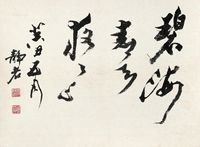 碧海
青天
夜夜心
癸丑五月
靜者